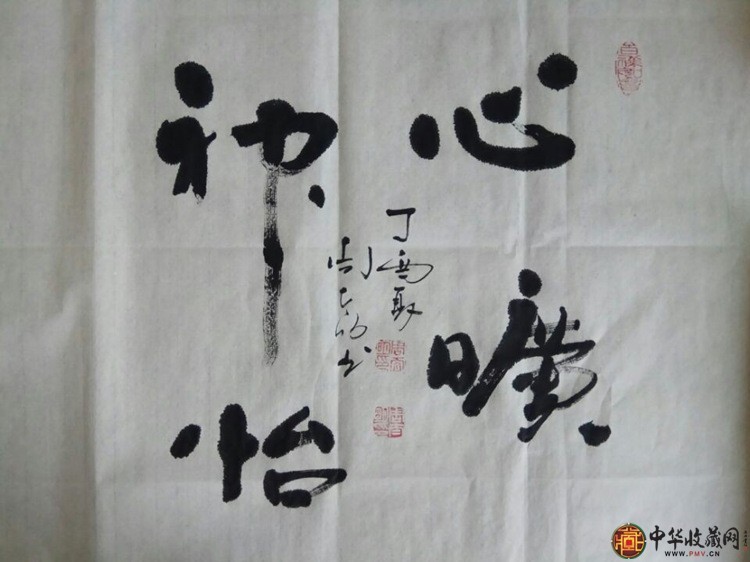 心曠
神怡
丁酉秋
周
书
中华收藏网
WWW.PMV.CN